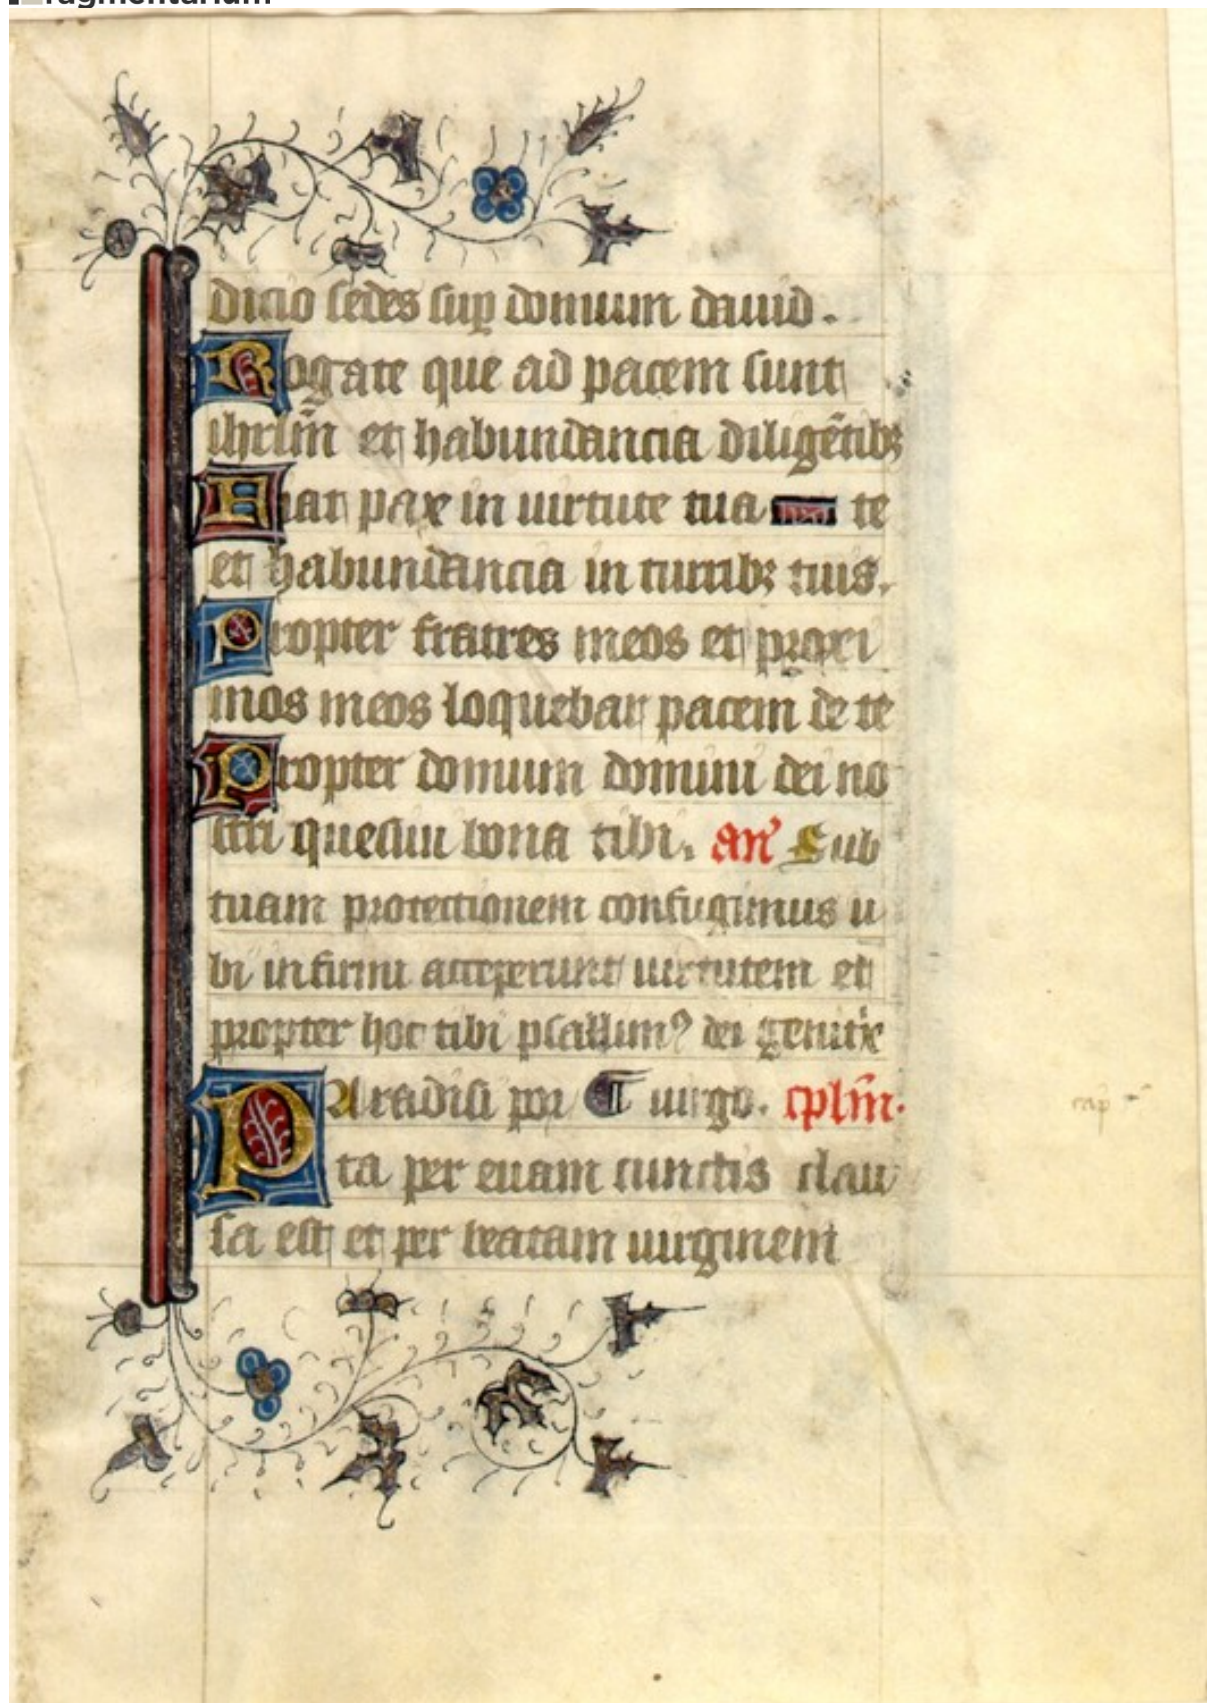 ragmentarium
dicio sedes sup domum dauid.
Rogate que ad pacem sunt
ihrlm̄ et habundancia diligētibꝫ
Fiat pax in uirtute tua te
et habundancia in turribꝫ tuis.
Propter fratres meos et proxi
mos meos loquebar pacem de te
Propter domum domini dei no
stri quesiui bona tibi. an̄ Sub
tuam protectionem confugimus u
bi infirmi acceperunt uirtutem et
propter hoc tibi psallimꝰ dei genitͥx
PAradisi por uirgo. cplm̄.
ta per euam cunctis clau
sa est et per beatam uirginem
cap